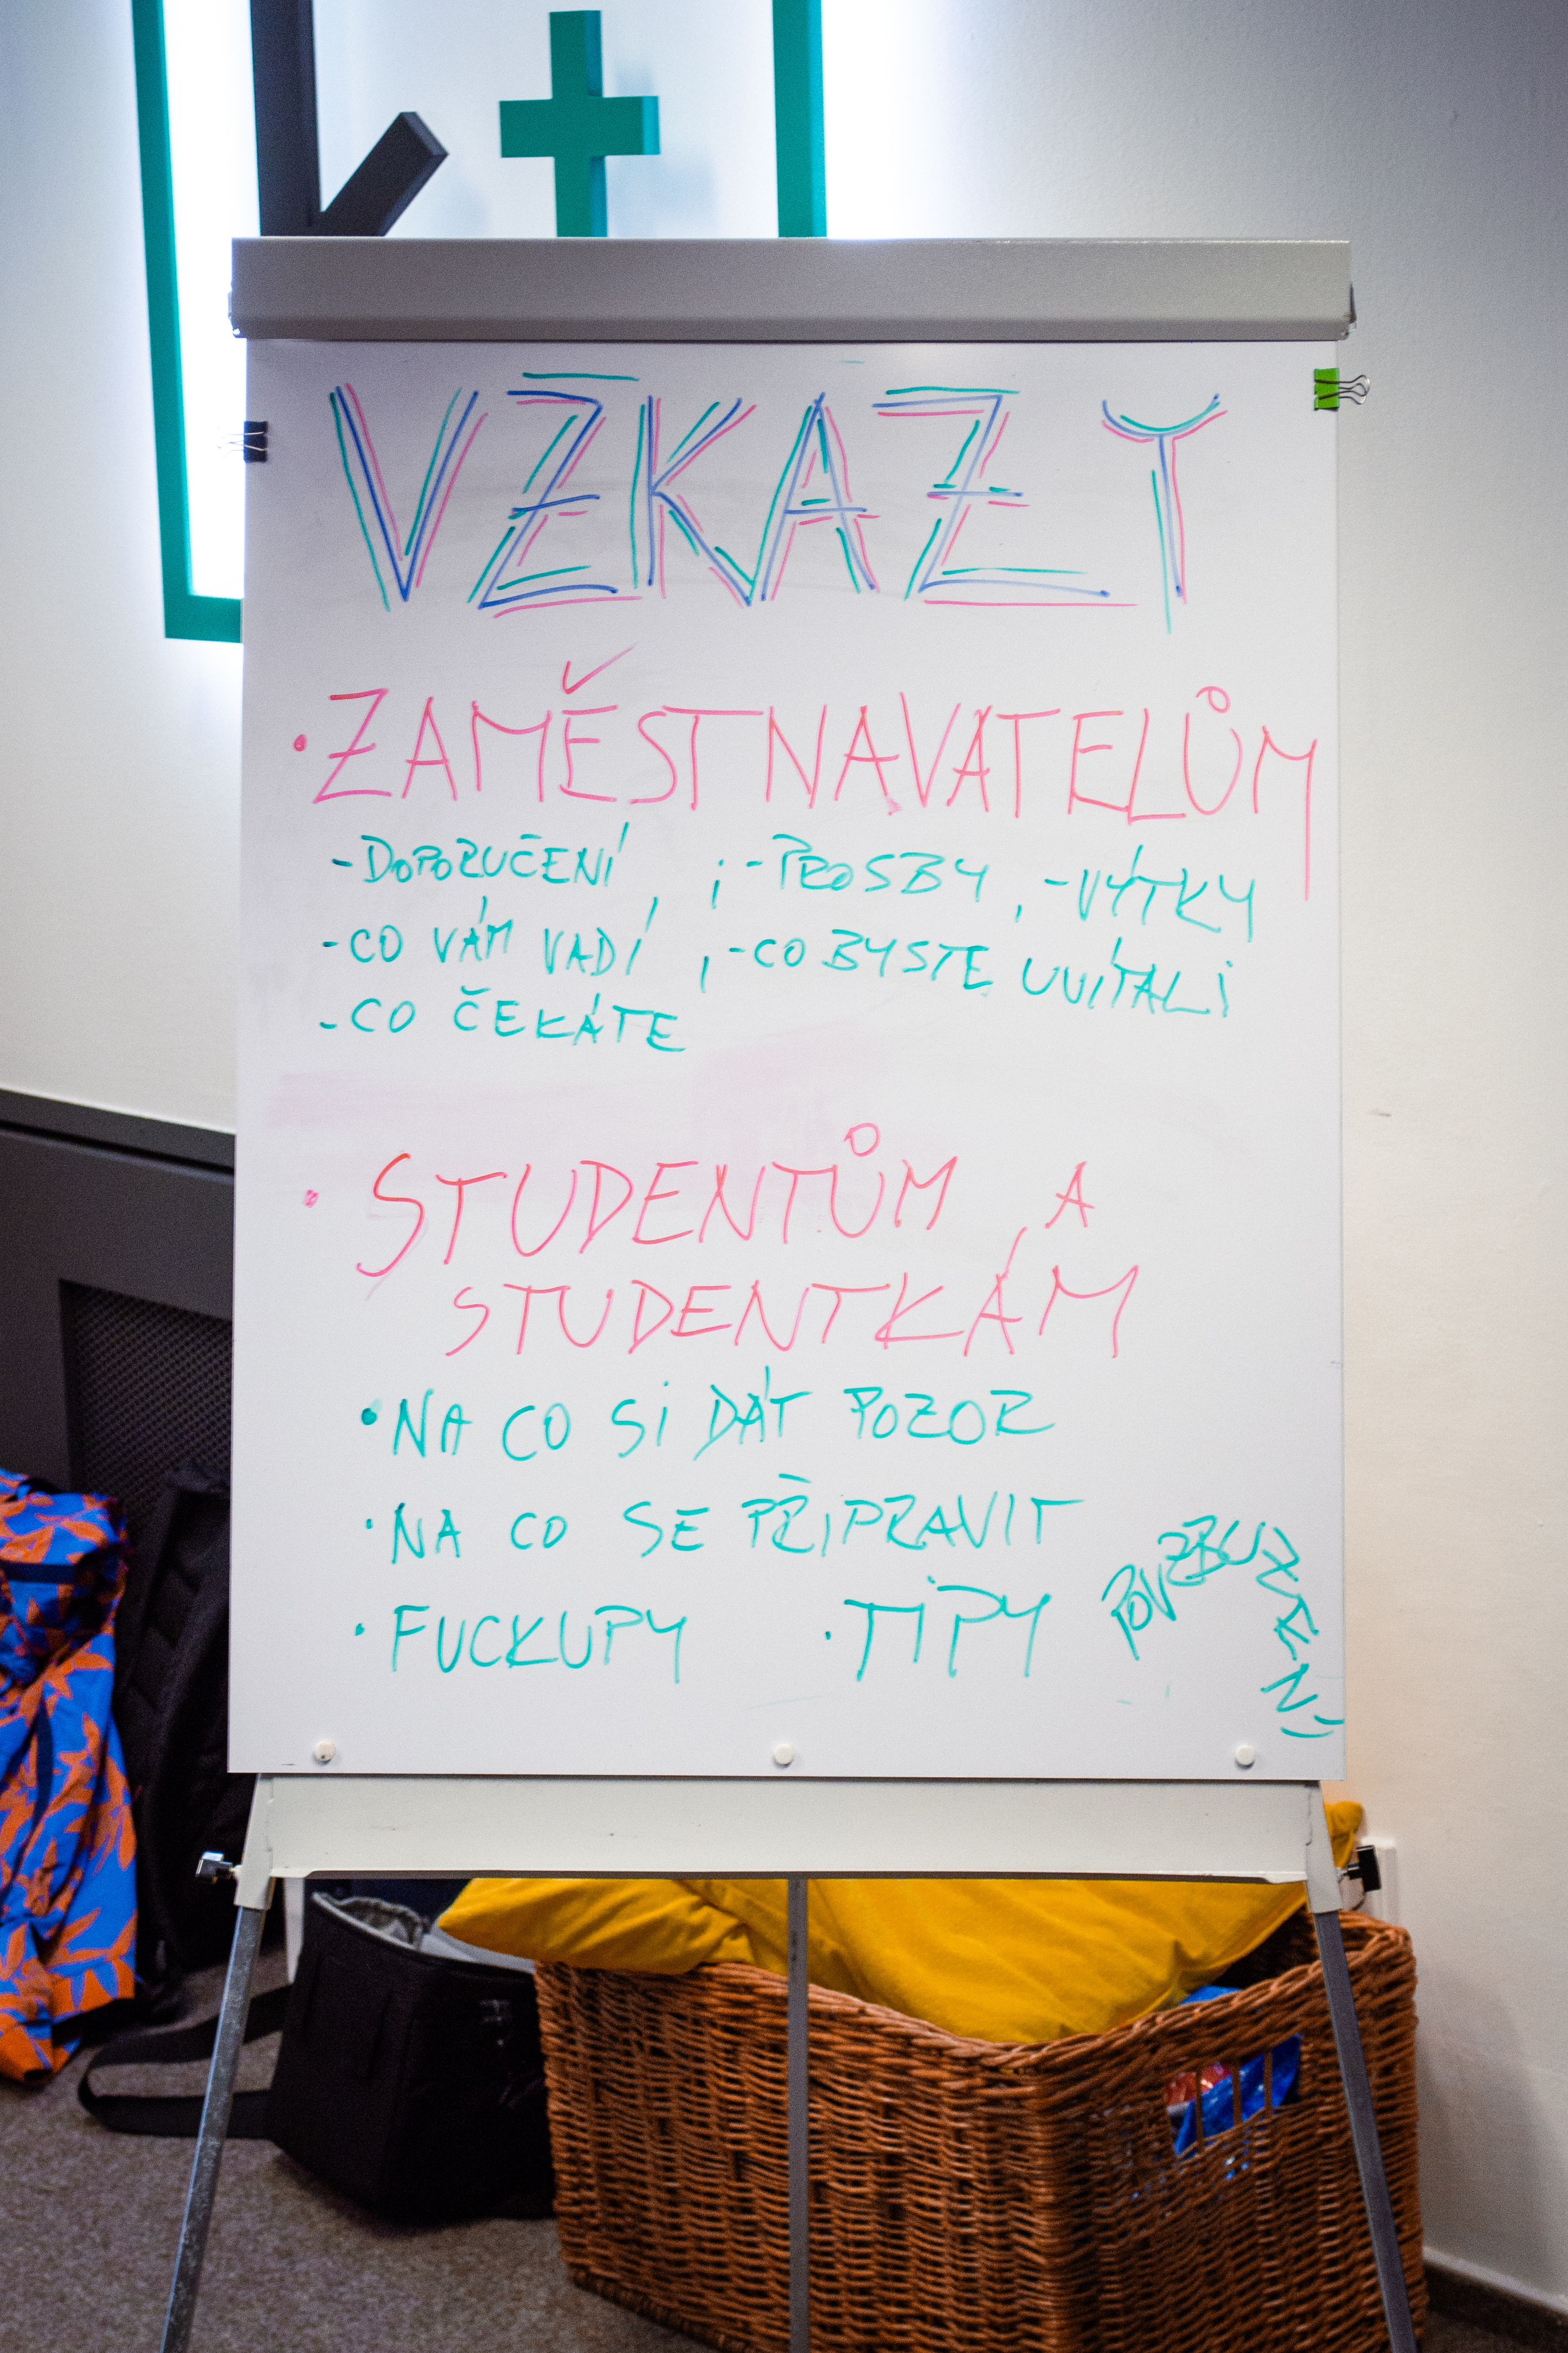 K+
VZKAZY
• ZAMĚSTNAVATELŮM
- DOPORUČENÍ , ; - PROSBY , - VÝTKY
- CO VÁM VADÍ , - CO BYSTE UVÍTALI
- CO ČEKÁTE
• STUDENTŮM A
STUDENTKÁM
• NA CO SI DÁT POZOR
• NA CO SE PŘIPRAVIT
• FUCKUPY • TIPY POVZBUZENÍ